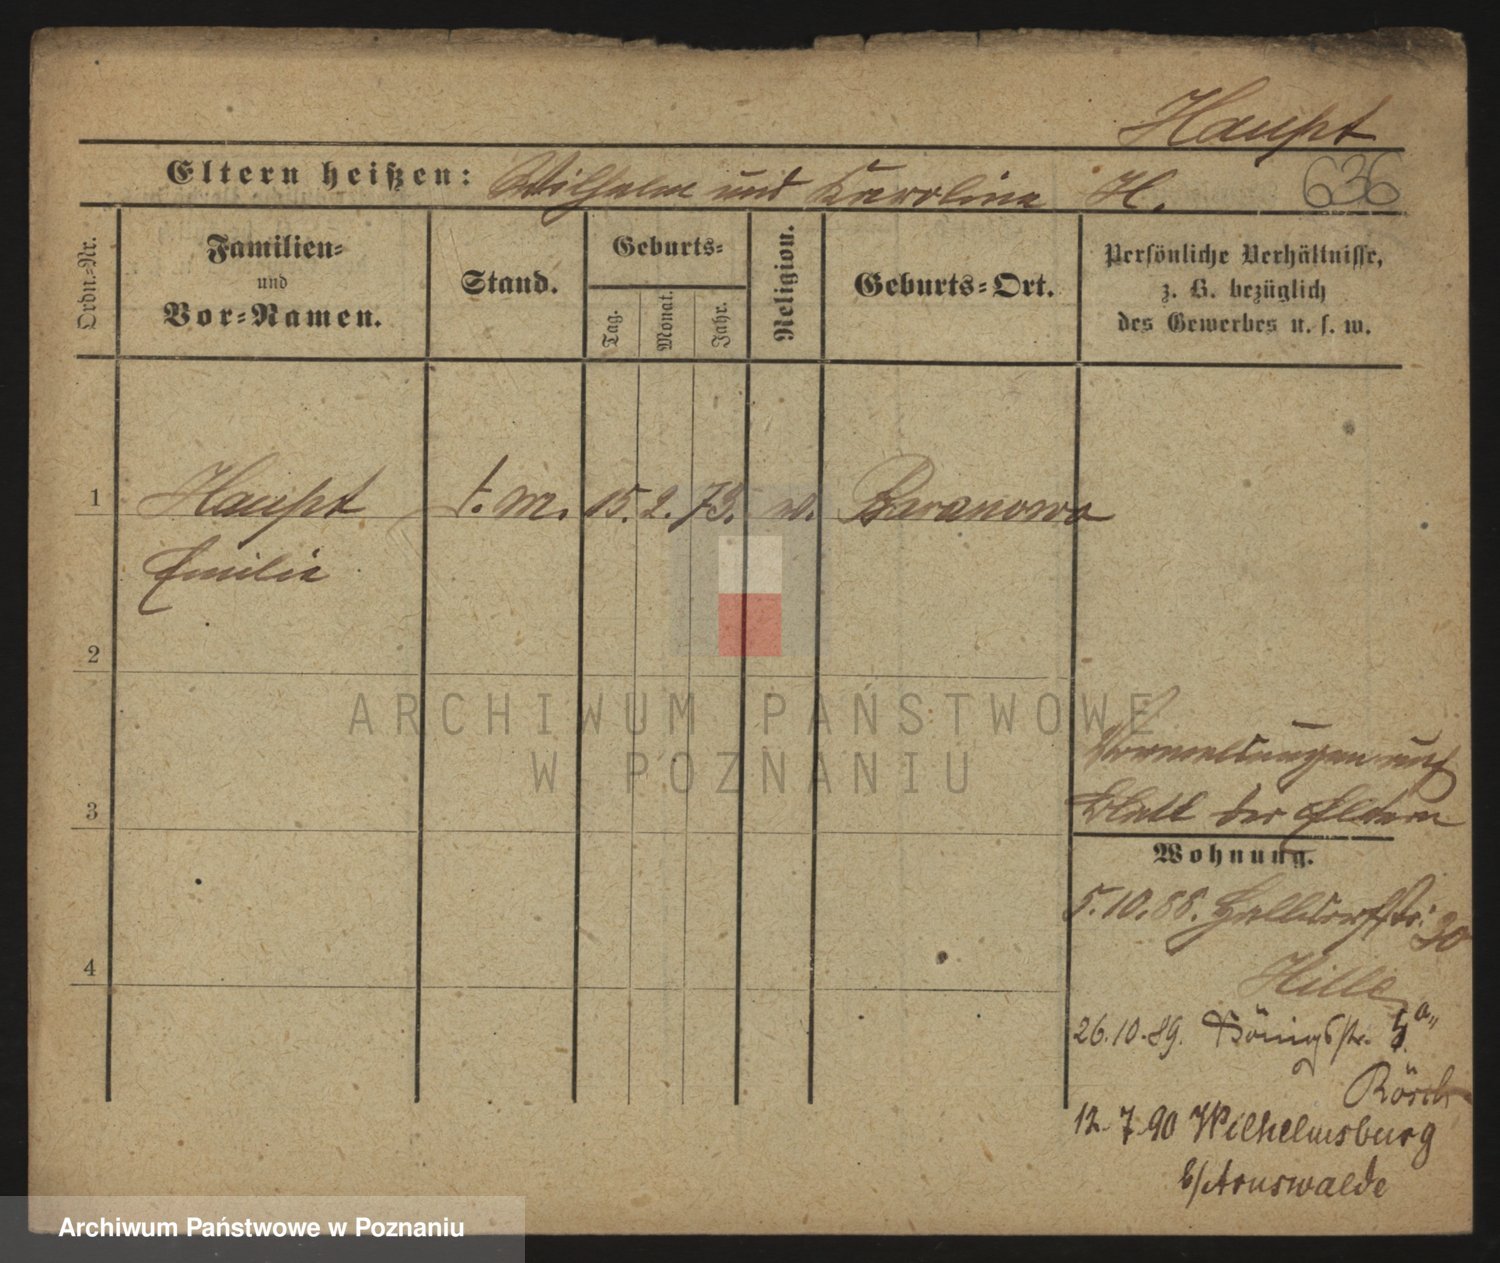 Haupt
Eltern heißen: Wilhelm und Karoline H. 636
Ordn.-Nr.
Familien-
und
Vor-Namen.
Stand.
Geburts-
Tag.
Monat.
Jahr.
Religion.
Geburts-Ort.
Persönliche Verhältnisse,
z. B. bezüglich
des Gewerbes u. s. w.
1 Haupt t. m. 15. 2. 73. w. Baranowo
Emilie
2
ARCHIWUM PAŃSTWOWE
W POZNANIU
3
Vormeldungen auf
Blatt der Eltern
Wohnung.
5.10.88. Halldorfstr: 30
Hille
4
26.10.89. Königsstr. 5a
Rösch
12.7.90 Wilhelmsburg
b/Arnswalde
Archiwum Państwowe w Poznaniu